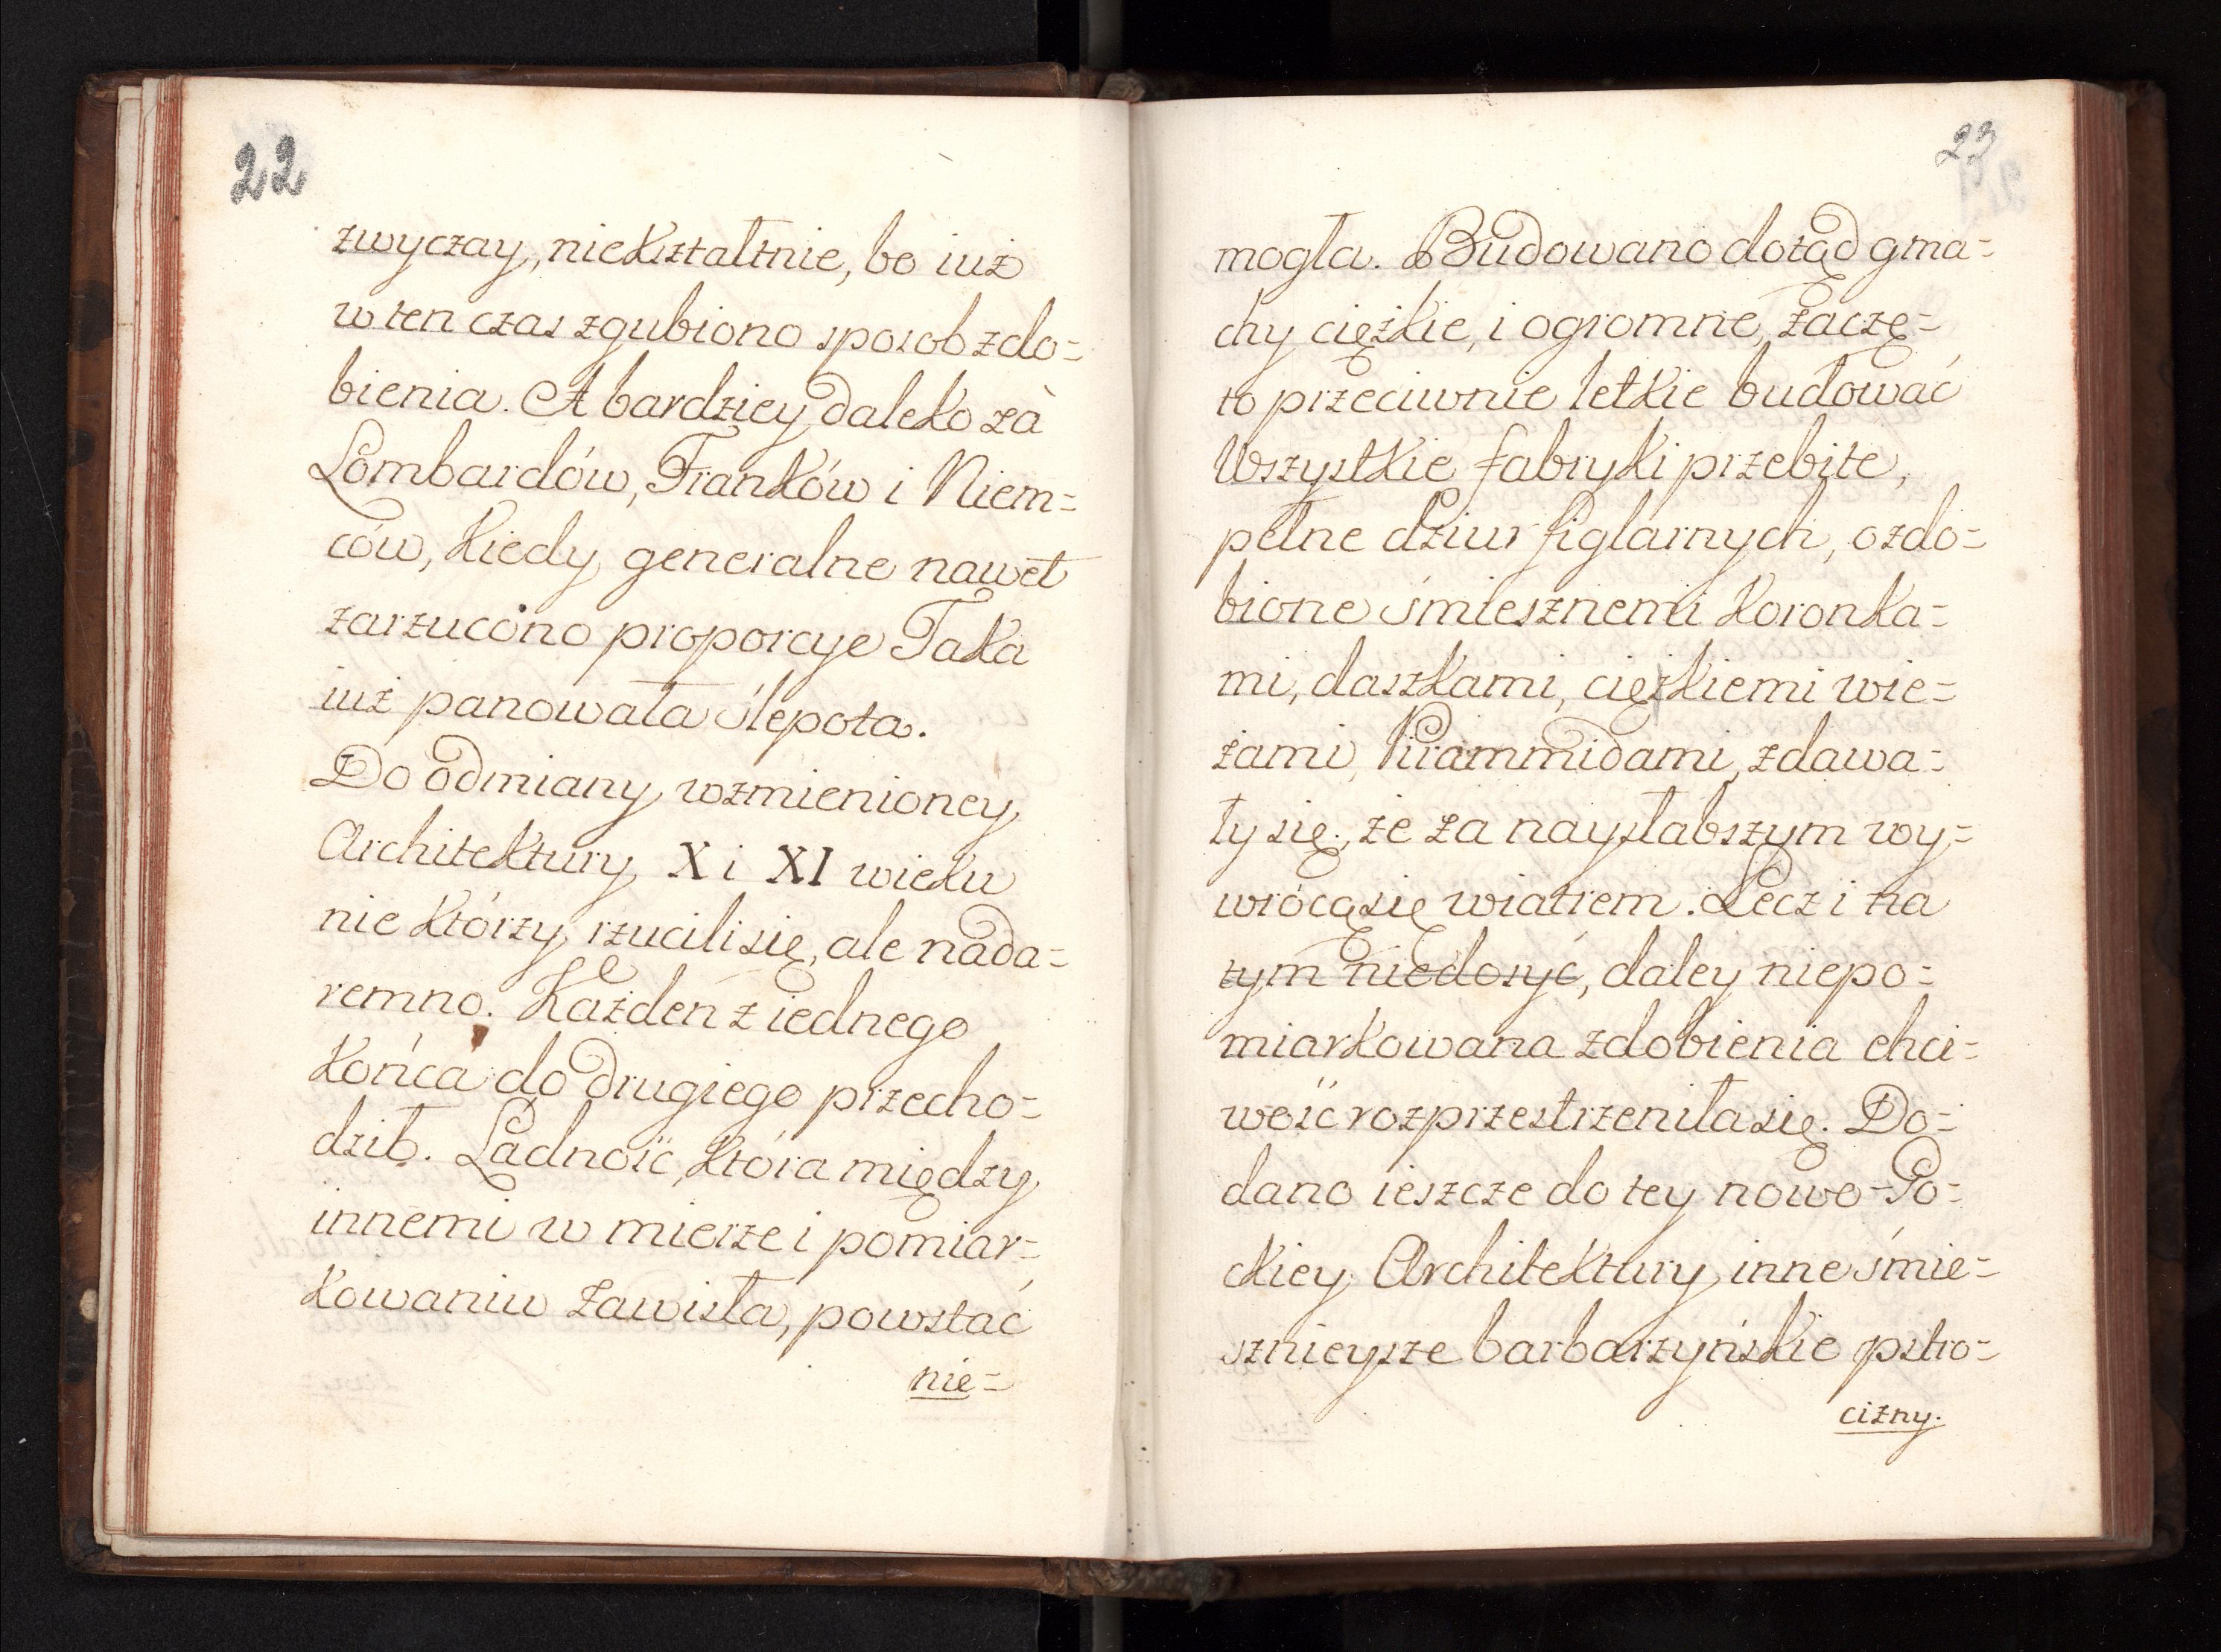 22
zwyczay, niekształtnie, bo iuż
w ten czas zgubiono sposob zdo=
bienia. A bardziey daleko zà
Lombardów, Franków i Niem=
ców, Kiedy generalne nawet
zarzucono proporcye Taka
iuż panowała ślepota.
Do odmiany wzmienioney
Architektury X i XI wieku
nie którzy rzucili się, ale nada=
remno. Każden z iednego
Końca do drugiego przecho=
dził. Ładność, która między
innemi w mierze i pomiar=
kowaniu zawisła, powstać
nie=
23
mogła. Budowano dotąd gma=
chy ciężkie, i ogromne, zaczę=
to przeciwnie letkie budować
Wszystkie fabryki przebite,
pełne dziur figlarnych, ozdo=
bione śmiesznemi koronka=
mi, daszkami, ciężkiemi wie=
żami, Pirammidami, zdawa=
ły się, że za naysłabszym wy=
wrócą się wiatrem. Lecz i na
tym niedosyć, daley niepo=
miarkowana zdobienia chci=
wość rozprzestrzeniła się. Do=
dano ieszcze do tey nowo-Go=
ckiey Architektury inne śmie=
sznieysze barbarzyńskie pstro=
cizny.